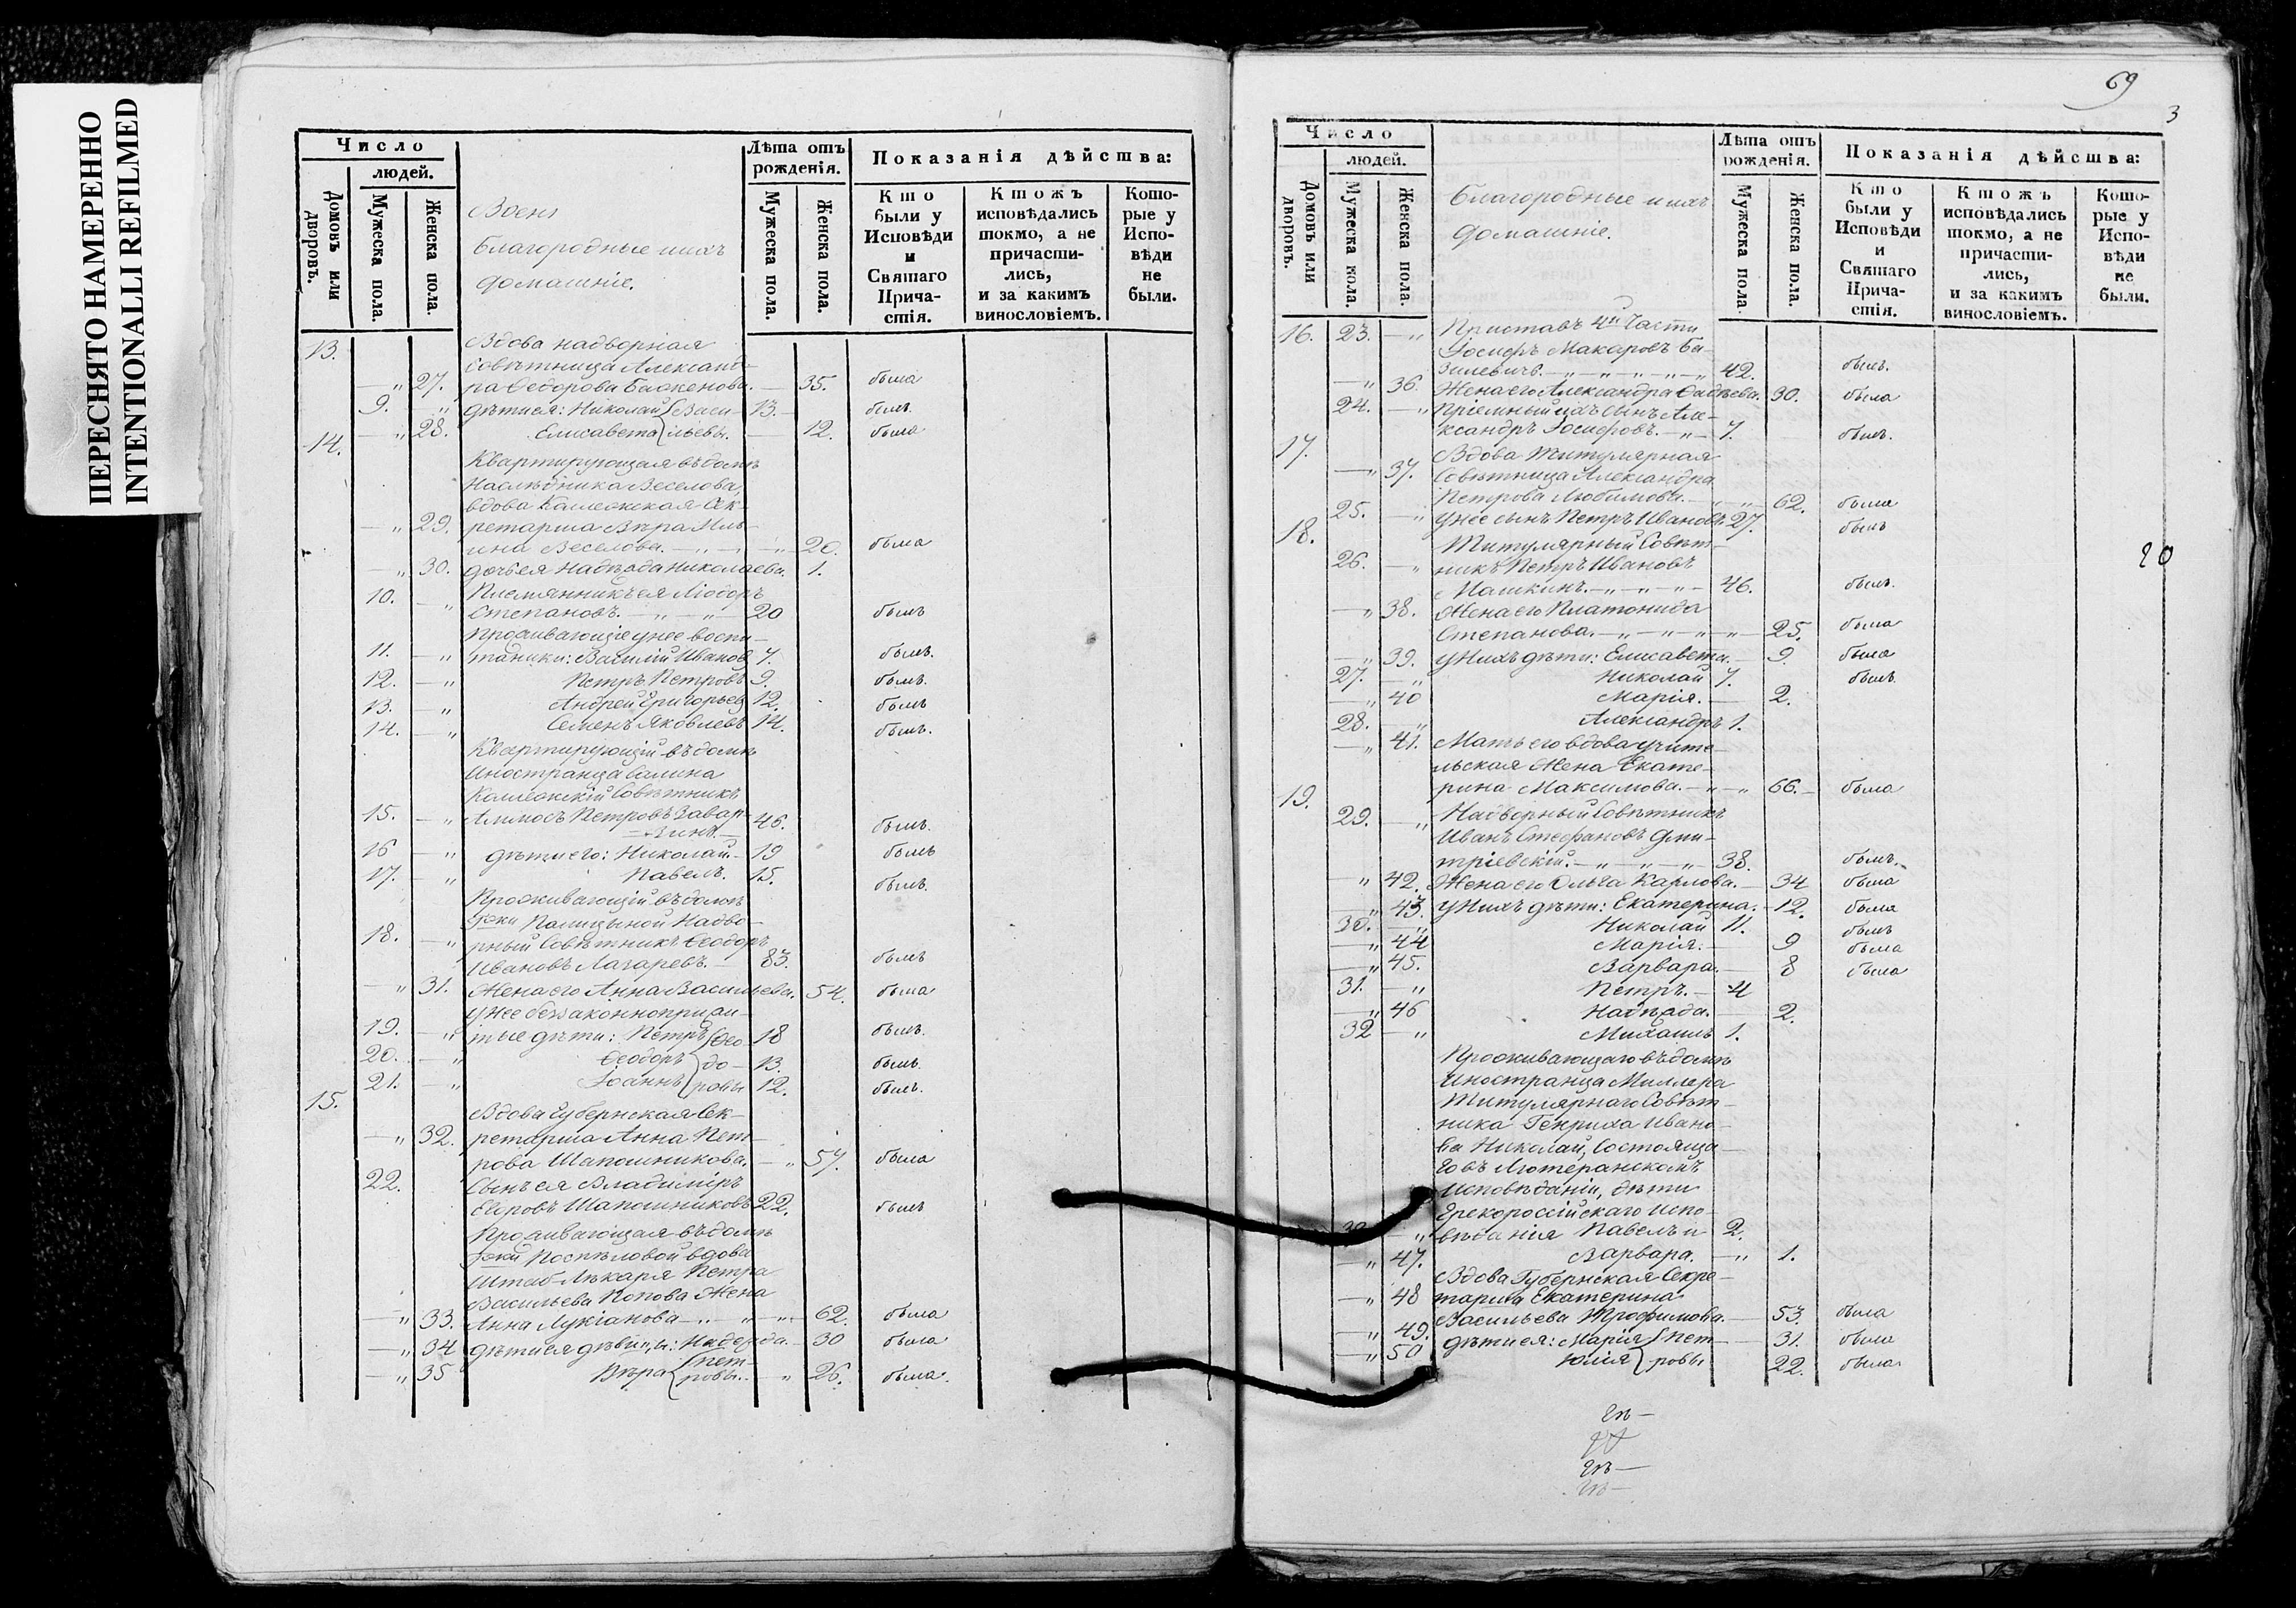 ПЕРЕСНЯТО НАМЕРЕННО
INTENTIONALLI REFILMED
Число
людей.
Домовъ или дворовъ.
Мужеска пола.
Женска пола.
Воен
благородные и ихъ
домашніе.
Лѣта отъ рожденія.
Мужеска пола.
Женска пола.
Показанія дѣйства:
Кто были у Исповѣди и Святаго Причастія.
Ктожъ исповѣдались токмо, а не причастились, и за какимъ винословіемъ.
Которые у Исповѣди не были.
13. Вдова надворная
совѣтница Александ-
27. ра Ѳедорова Баженова. 35. была
9. дѣти ея: Николай Васи- 13. былъ.
28. Елисавета льевы. 12. была
14. Квартирующая въ домѣ
Наслѣдника Веселова,
вдова Коллежская Сек-
29. ретарша Вѣра Иль-
ина Веселова. 20. была
30. дочь ея Надежда Николаева. 1.
10. Племянникъ ея Ліодоръ
Степановъ. 20 былъ
Проживающіе у нее воспи-
11. таники: Василій Иванов 7. былъ.
12. Петръ Петровъ 9. былъ.
13. Андрей Григорьев 12. былъ
14. Семенъ Яковлевъ 14. былъ.
Квартирующій въ домѣ
Иностранца Салина
Коллежскій Совѣтникъ
15. Петровъ Завар- 46. былъ.
зинъ.
16 дѣти его: Николай. 19 былъ
17. Павелъ. 15. былъ.
Проживающій въ домѣ
Г-жи Палицыной Надво-
18. рный Совѣтникъ Ѳеодоръ
Ивановъ Лагаревъ. 83. былъ
31. Жена его Анна Васильева. 54. была
у Нее беззаконноприжи-
19. тые дѣти: Петръ Ѳео- 18 былъ.
20. Ѳеодоръ до- 13. былъ.
21. Іоаннъ ровы 12. былъ.
15. Вдова Губернская Сек-
32. ретарша Анна Пет-
рова Шапошникова. 57. была
22. Сынъ ея Владиміръ
Шапошниковъ 22. былъ
Проживающая въ домѣ
Г-жи Поспѣловой вдова
Штаб-Лѣкаря Петра
Васильева Попова Жена
33. Анна Лукіанова 62. была
34 дѣти ея дѣвицы: Надежда. 30 была
35 Вѣра Петровы. 26. была.
69
3
Число
людей.
Домовъ или дворовъ.
Мужеска пола.
Женска пола.
благородные и ихъ
домашніе.
Лѣта отъ рожденія.
Мужеска пола.
Женска пола.
Показанія дѣйства:
Кто были у Исповѣди и Святаго Причастія.
Ктожъ исповѣдались токмо, а не причастились, и за какимъ винословіемъ.
Которые у Исповѣди не были.
16. 23. Приставъ 4й Части
Іосифъ Макаровъ Ба-
зилевичъ. 42. былъ.
36. Жена его Александра Ѳадѣева. 30. была
24. Пріемный ихъ сынъ Але-
ксандръ Іосифовъ. 7. былъ.
17. Вдова Титулярная
37. Совѣтница Александра
Петрова Любимова. 62. была
25. у нее сынъ Петръ Ивановъ 27. былъ
18. Титулярный Совѣт-
26. никъ Петръ Ивановъ
Машкинъ. 46. былъ.
20
38. Жена его Платонида
Степанова. 25. была
39. у Нихъ дѣти: Елисавета. 9. была
27. Николай 7. былъ
40 Марія. 2.
28. Александръ 1.
41. Мать его вдова учите-
льская Жена Екате-
рина Максимова. 66. была
19. 29. Надворный Совѣтникъ
Иванъ Стефановъ Дми-
тріевскій. 38. былъ.
42. Жена его Ольга Карлова. 34 была
43. у Нихъ дѣти: Екатерина. 12. была
30. Николай 11. былъ
44 Марія. 9 была
45. Варвара. 8 была
31. Петръ. 4
46 Надежда. 2.
32 Михаилъ 1.
Проживающаго въ домѣ
Иностранца Миллера
Титулярнаго Совѣт-
ника Генриха Ивано-
ва Николай, Состояща-
го въ Лютеранскомъ
Исповѣданіи, дѣти
Грекороссійскаго Испо-
вѣданія Павелъ и 2.
47. Варвара. 1.
Вдова Губернская Секре-
48 тарша Екатерина
Васильева Трофимова. 53. была
49. дѣти ея: Марія Пет- 31. была
50 Юлія ровы 22. была